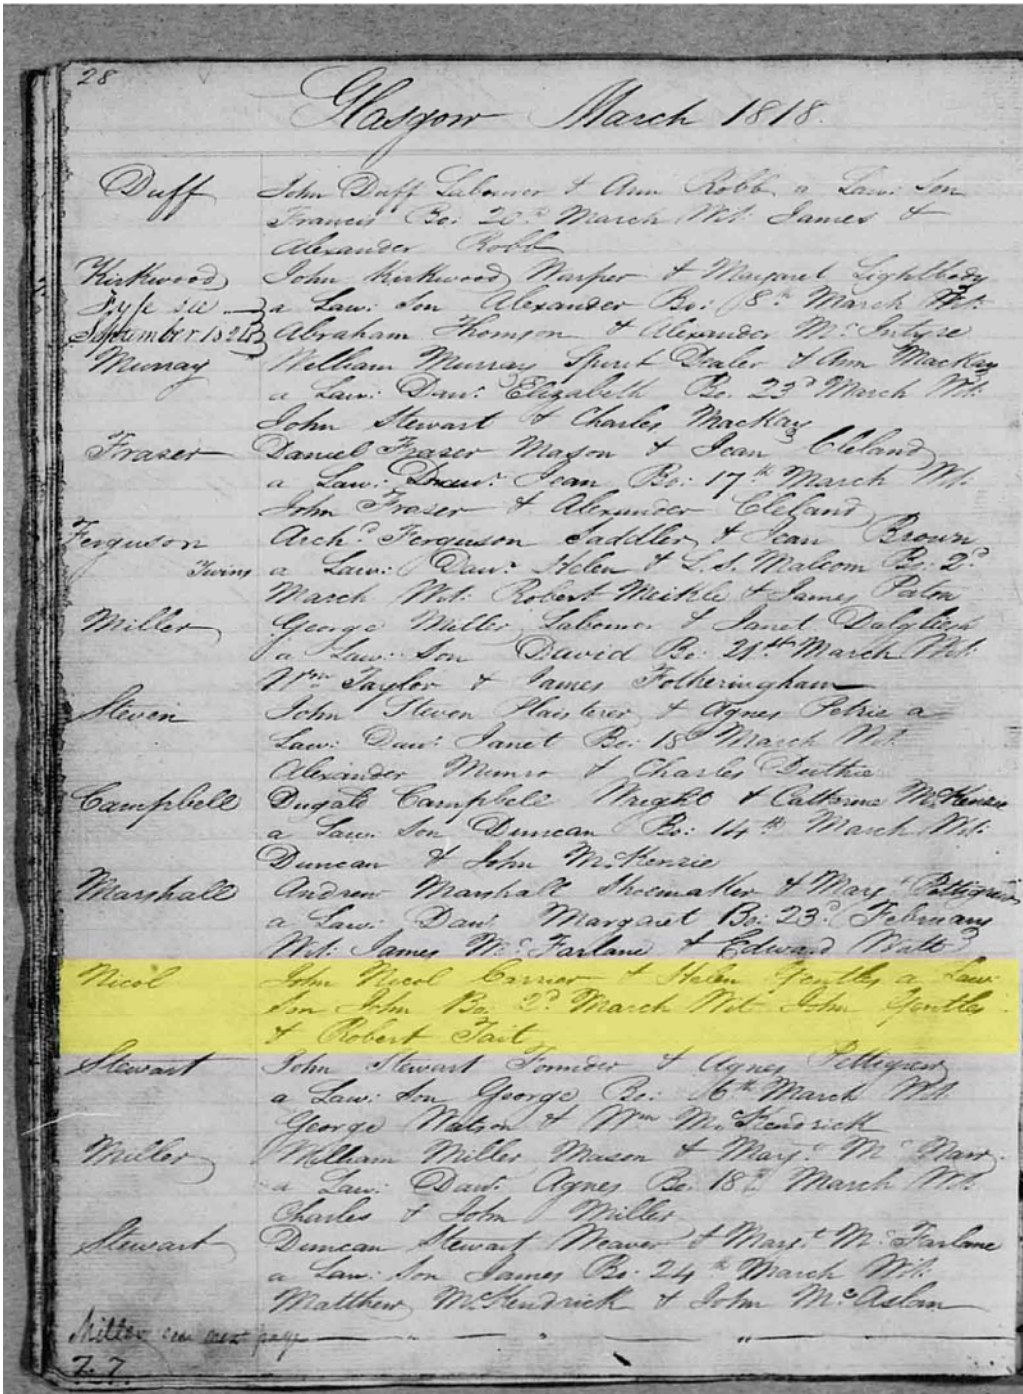 28
Glasgow March 1818.
Duff John Duff Labourer & Ann Robb a Law: Son
Francis Bo: 20th March Wit: James &
Alexander Robb
Kirkwood John Kirkwood Warper & Margaret Lightbody
a Law: Son Alexander Bo: 8th March Wit:
September Abraham Thomson & Alexander McIntyre
Murray William Murray Spirit Dealer & Ann Mackay
a Law: Dawr. Elizabeth Bo. 23d March Wit:
John Stewart & Charles Mackay
Fraser Daniel Fraser Mason & Jean Cleland
a Law: Dawr. Jean Bo: 17th March Wit:
John Fraser & Alexander Cleland
Ferguson Archd. Ferguson Saddler & Jean Brown
Twins a Law: Dawr. Helen & L. S. Malcom Bo: 2d
March Wit: Robert Meikle & James Paton
Miller George Miller Labourer & Janet Dalgliesh
a Law: Son David Bo: 21st March Wit:
Wm Taylor & James Fotheringham
Steven John Steven Plaisterer & Agnes Petrie a
Law: Dawr. Janet Bo: 18 March Wit.
Alexander Munro & Charles Duthie
Campbell Dugald Campbell Wright & Catharine McKenzie
a Law: Son Duncan Bo: 14th March Wit:
Duncan & John McKenzie
Marshall Andrew Marshall Shoemaker & Mary Pettigrew
a Law: Dawr. Margaret Bo: 23d February
Wit: James McFarlane & Edward Watt
Nicol John Nicol Carrier & Helen Gentles a Law:
Son John Bo. 2d March Wit John Gentles
& Robert Tait
Stewart John Stewart Founder & Agnes Pettigrew
a Law: Son George Bo: 16th March Wit.
George Watson & Wm McKendrick
Miller William Miller Mason & Margt. Mc Narr
a Law: Dawr. Agnes Bo. 18th March Wit.
Charles & John Miller
Stewart Duncan Stewart Weaver & Margt. McFarlane
a Law: Son James Bo: 24th March Wit:
Matthew McKendrick & John McAslan
Miller see next page
7.7.